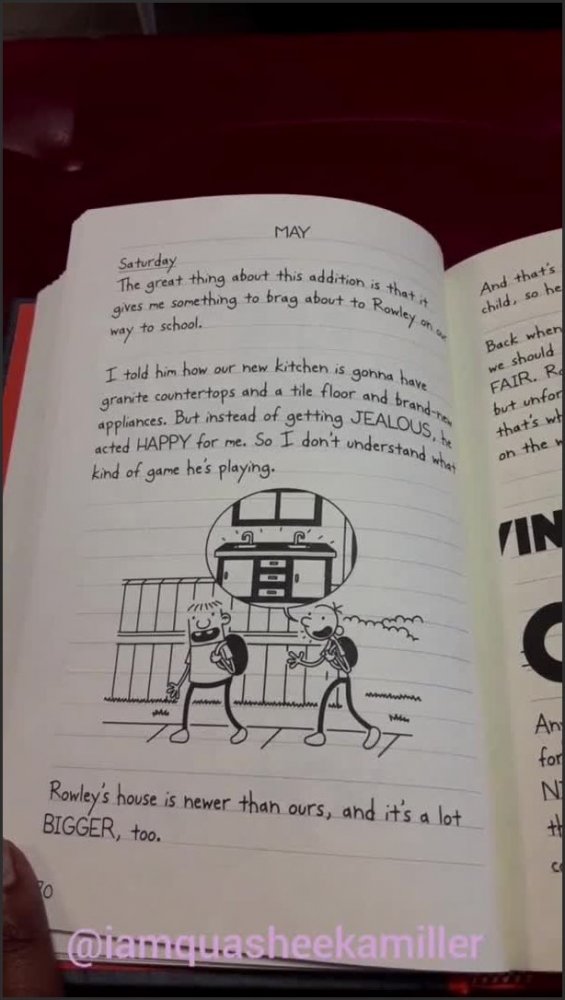 MAY
Saturday
The great thing about this addition is that it
gives me something to brag about to Rowley on our
way to school.
I told him how our new kitchen is gonna have
granite countertops and a tile floor and brand-new
appliances. But instead of getting JEALOUS, he
acted HAPPY for me. So I don't understand what
kind of game he's playing.
Rowley's house is newer than ours, and it's a lot
BIGGER, too.
And that's
child, so he
Back when
we should
FAIR.
but unfor
that's wh
on the
@iamquasheekamiller